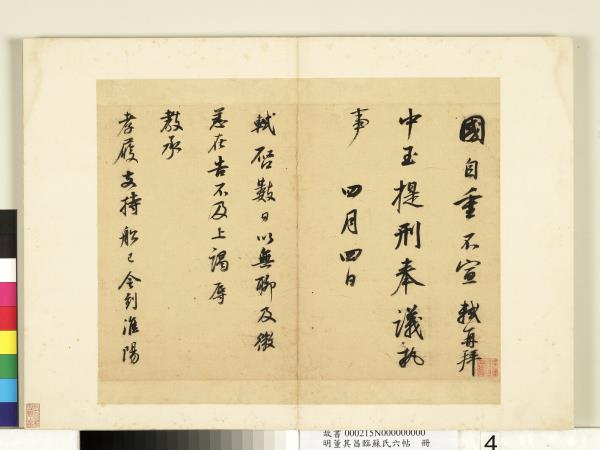 國自重不宣軾再拜
中玉提刑奉議執
事
四月四日
軾啓數日以無聊及微
恙在告不及上謁辱
教承
孝履支持船已令到淮陽
故書000215N000000000
明董其昌臨蘇氏六帖 冊
4